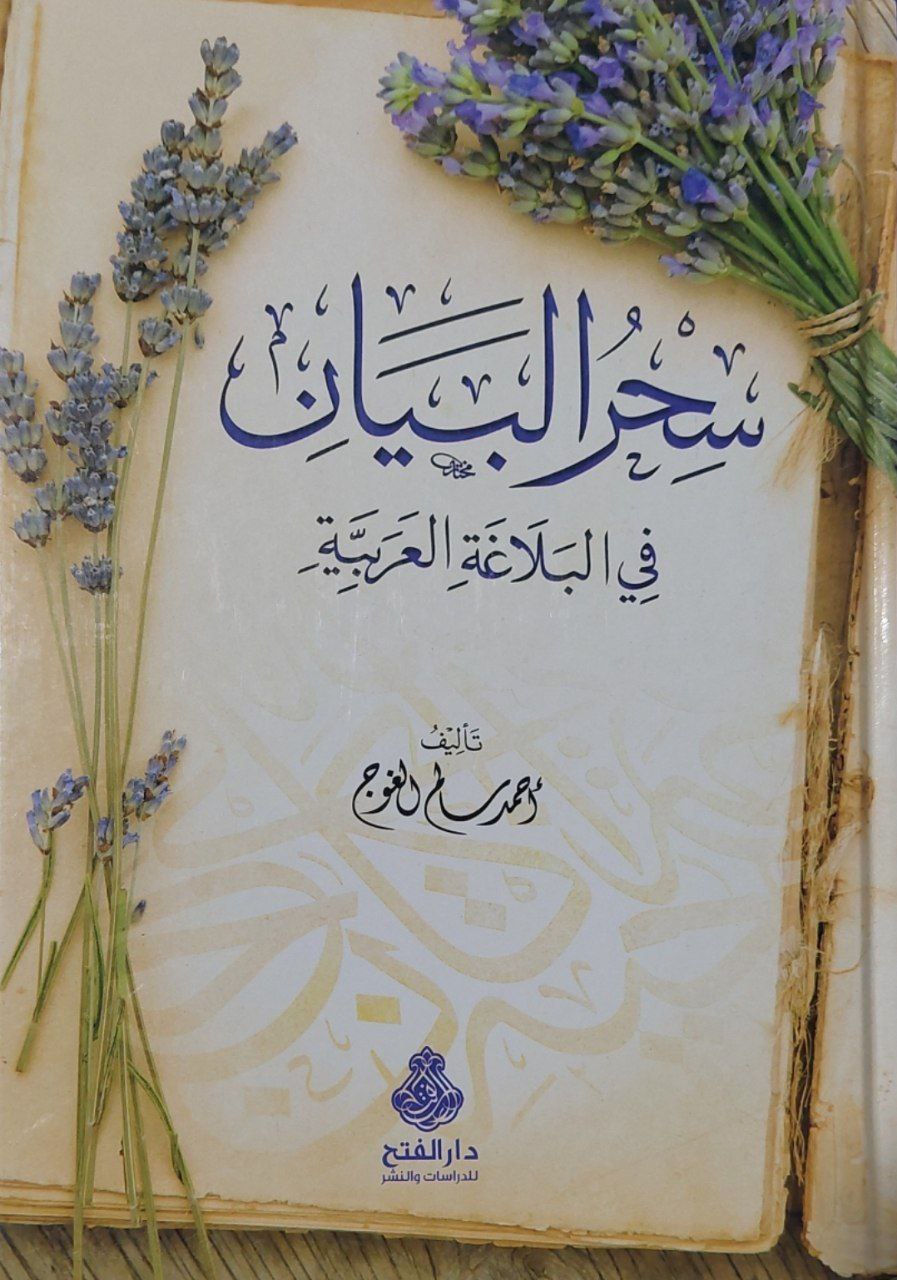 سِحْرُ البَيَانِ
فِي البَلَاغَةِ العَرَبِيَّةِ
تَأليْفُ
أحمد سالم الغوج
دار الفتح
للدراسات والنشر